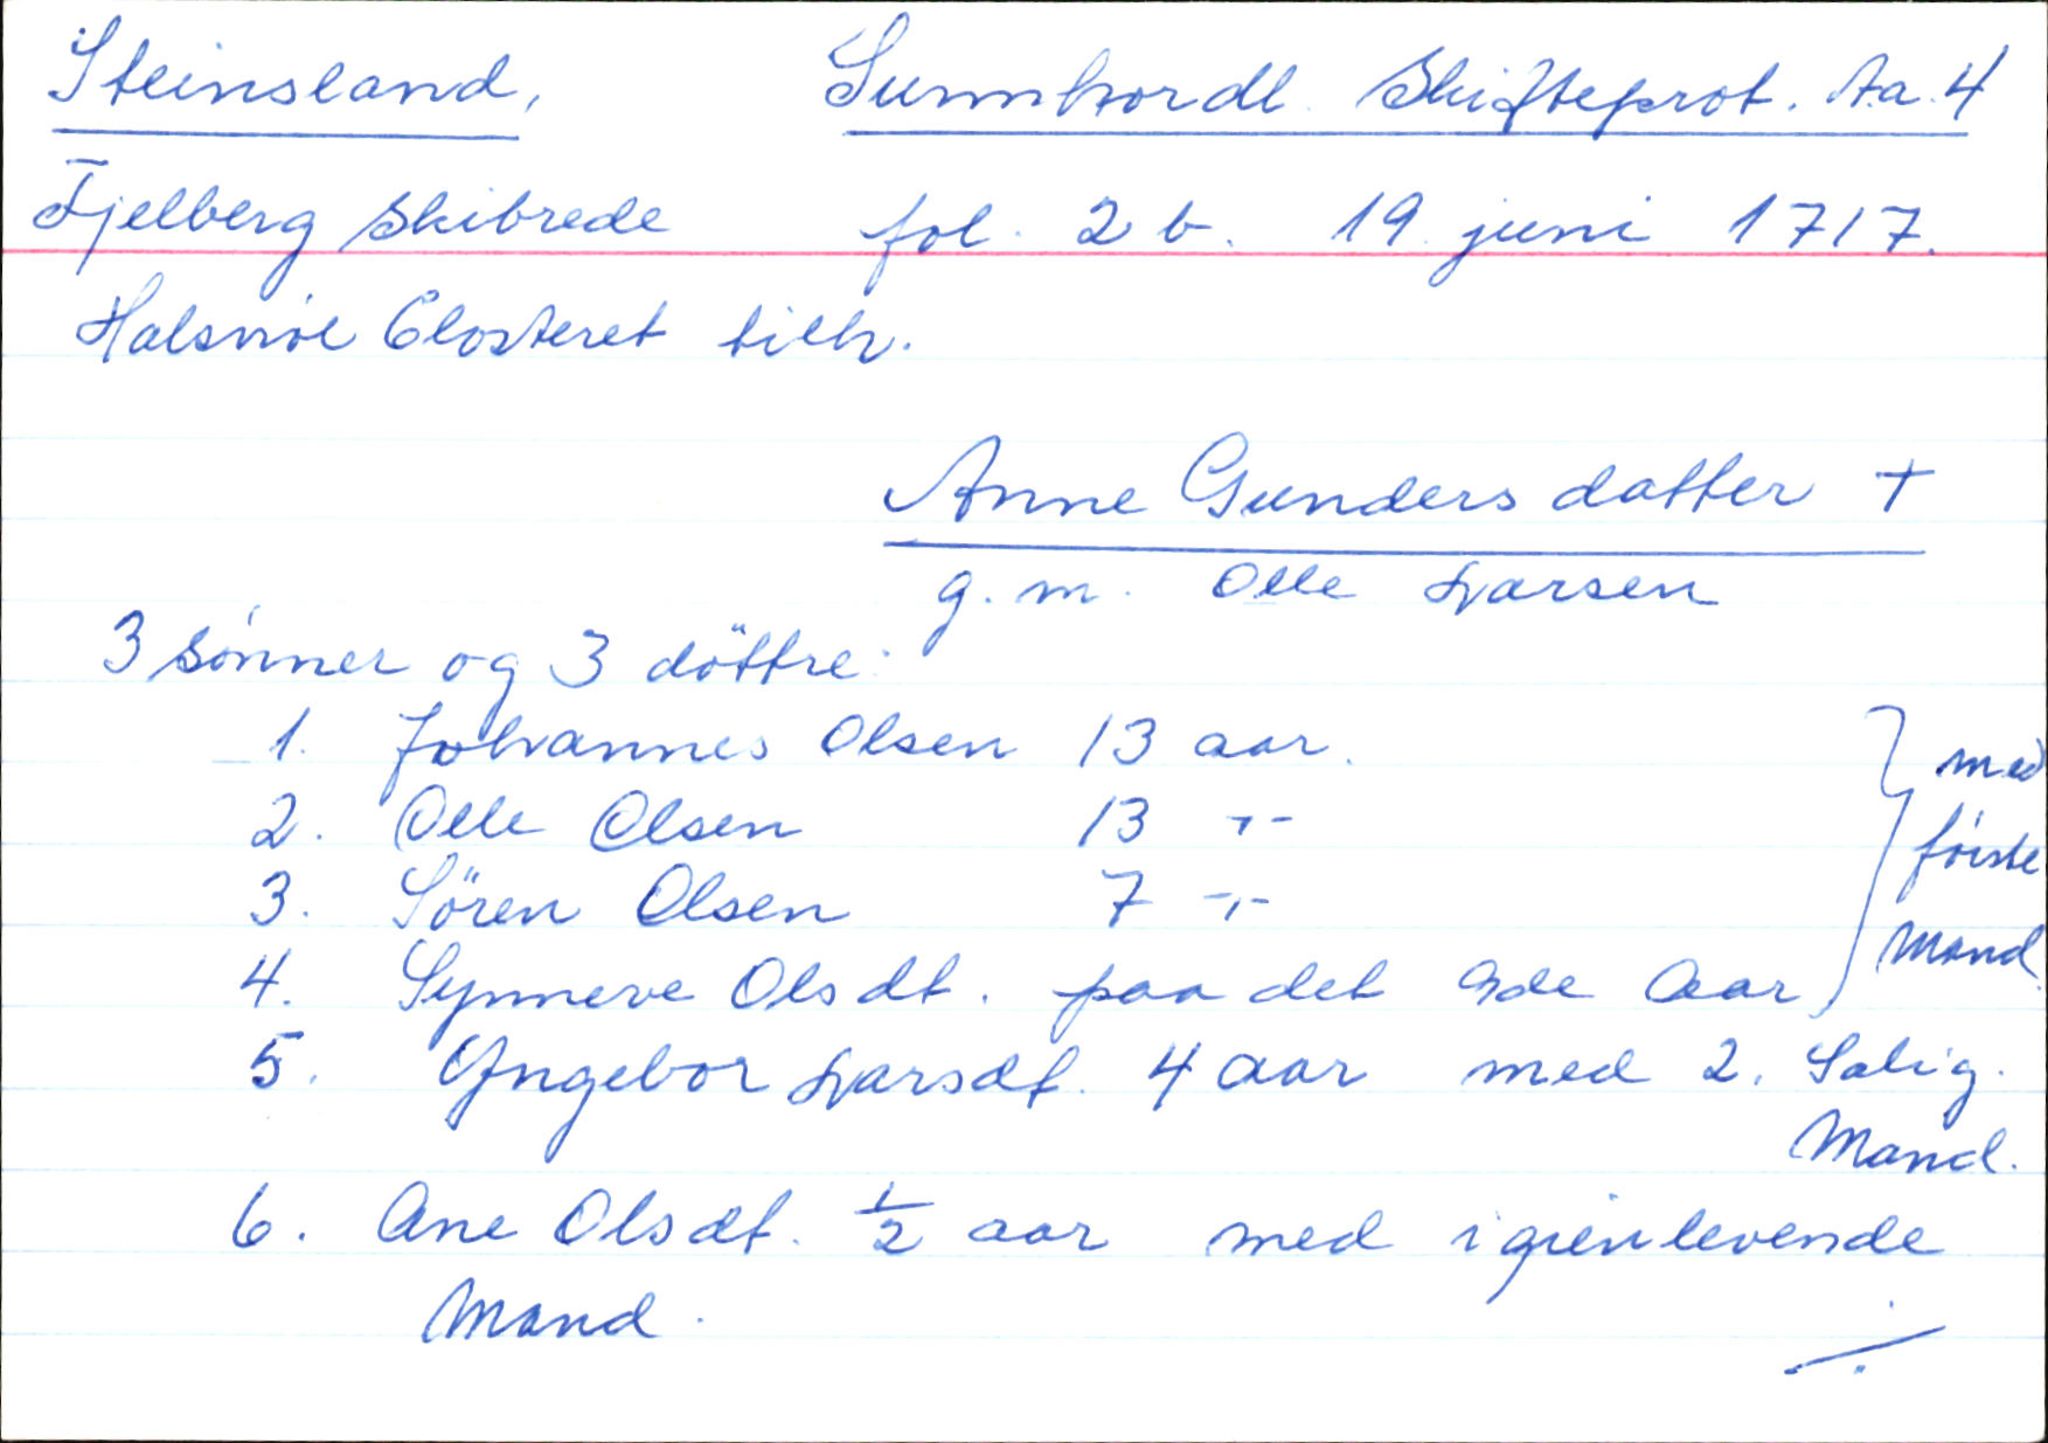 Steinsland, Sunnhordl. Skifteprot. Aa. 4
Fjelberg Skibrede fol. 2 b. 19 juni 1717.
Halsnøe Closteret tilh.
Anne Gundersdatter +
g. m. Olle Larsen
3 sønner og 3 döttre:
1. Johannes Olsen 13 aar.
2. Olle Olsen 13 -"-
3. Sören Olsen 7 -"-
4. Synneve Olsdt. paa det 9de Aar } med første Mand.
5. Yngebor Larsdt. 4 aar med 2. Salig. Mand.
6. Ane Olsdt. ½ aar med igienlevende
Mand.